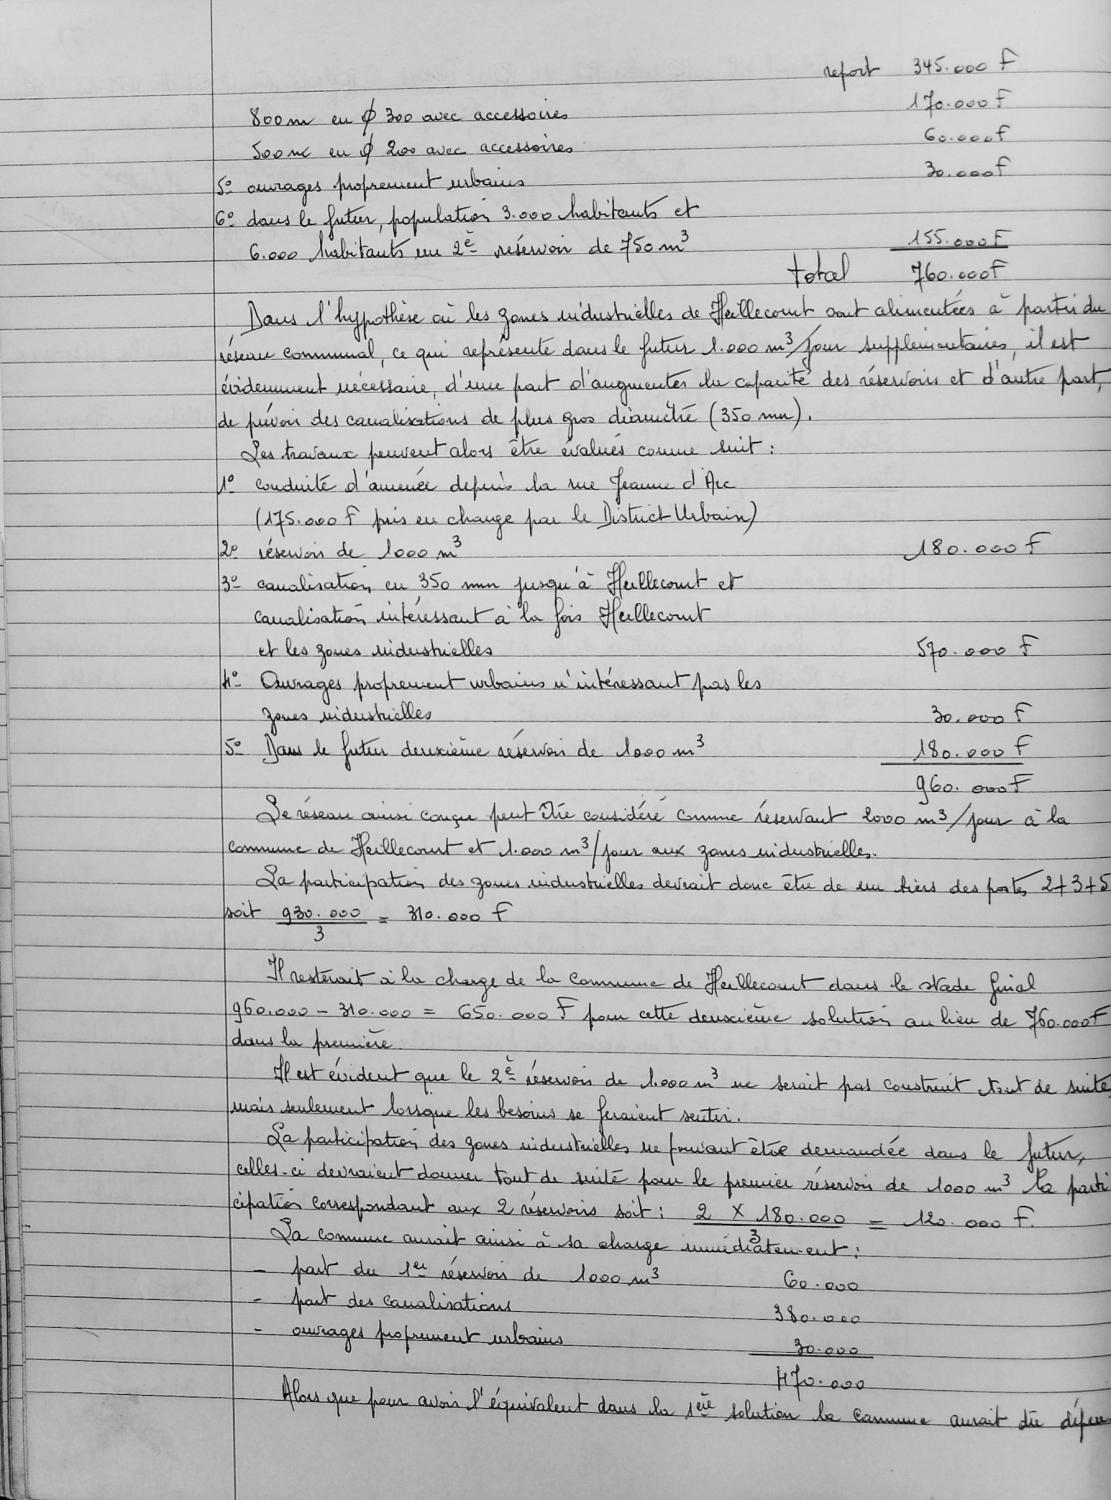 report 345.000 F
800m en ϕ 300 avec accessoires 170.000 F
500m en ϕ 200 avec accessoires 60.000 F
5° ouvrages proprement urbains 30.000 F
6° dans le futur, population 3.000 habitants et
6.000 habitants un 2è réservoir de 750 m³ 155.000 F
total 760.000 F
Dans l'hypothèse où les zones industrielles de Heillecourt sont alimentées à partir du
réseau communal, ce qui représente dans le futur 1.000 m³/jour supplémentaires, il est
évidemment nécessaire, d'une part d'augmenter la capacité des réservoirs et d'autre part,
de prévoir des canalisations de plus gros diamètre (350 mm).
Les travaux peuvent alors être évalués comme suit :
1° conduite d'amenée depuis la rue Jeanne d'Arc
(175.000 F pris en charge par le District Urbain)
2° réservoir de 1000 m³ 180.000 F
3° canalisation en 350 mm jusqu'à Heillecourt et
canalisation intéressant à la fois Heillecourt
et les zones industrielles 570.000 F
4° Ouvrages proprement urbains n'intéressant pas les
zones industrielles 30.000 F
5° Dans le futur deuxième réservoir de 1000 m³ 180.000 F
960.000 F
Le réseau ainsi conçu peut être considéré comme réservant 2000 m³/jour à la
commune de Heillecourt et 1.000 m³/jour aux zones industrielles.
La participation des zones industrielles devrait donc être de un tiers des postes 2+3+5
soit 930.000 = 310.000 F
3
Il resterait à la charge de la commune de Heillecourt dans le stade final
960.000 - 310.000 = 650.000 F pour cette deuxième solution au lieu de 760.000 F
dans la première.
Il est évident que le 2è réservoir de 1.000 m³ ne serait pas construit tout de suite
mais seulement lorsque les besoins se feraient sentir.
La participation des zones industrielles ne pouvant être demandée dans le futur,
celles-ci devraient donner tout de suite pour le premier réservoir de 1000 m³ la parti
cipation correspondant aux 2 réservoirs soit : 2 X 180.000 = 120.000 F.
3
La commune aurait ainsi à sa charge immédiatement :
- part du 1er réservoir de 1000 m³ 60.000
- part des canalisations 380.000
- ouvrages proprement urbains 30.000
470.000
Alors que pour avoir l'équivalent dans la 1ère solution la commune aurait dû dépen